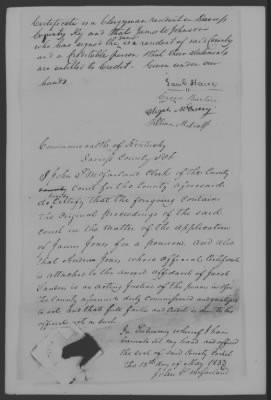 Certificate is a Clergyman resident in Daviess
County Ky and that James W Johnson
who has signed the same is a resident of said County
and a Creditable person that their statements
are entitled to Credit. Given under our
hands.
William M
Commonwealth of Kentucky
Daviess County Sct
I John S McFarland Clerk of the County
Court for the County aforesaid
do Certify that the foregoing contains
The Original Proceedings of the said
court in the matter of the application
of James Jones for a pension, and also
that Jones, whose official Certificate
is attached to the annexed affidavit of Jacob
is an acting Justice of the peace in & for
The County aforesaid duly Commissioned and
to act and that full faith and credit is due to his
official acts as such
In Testimony whereof I have
hereunto set my hand and affixed
the seal of said County Court
this 13th day of May 1833
John S McFarland